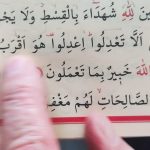 لِلّٰهِ شُهَدَٓاءَ بِالْقِسْطِ وَلَا
اَلَّا تَعْدِلُوا اِعْدِلُوا هُوَ اَقْرَبُ
اللّٰهَ خَبِيرٌ بِمَا تَعْمَلُونَ
الصَّالِحَاتِ لَهُمْ مَغْفِ